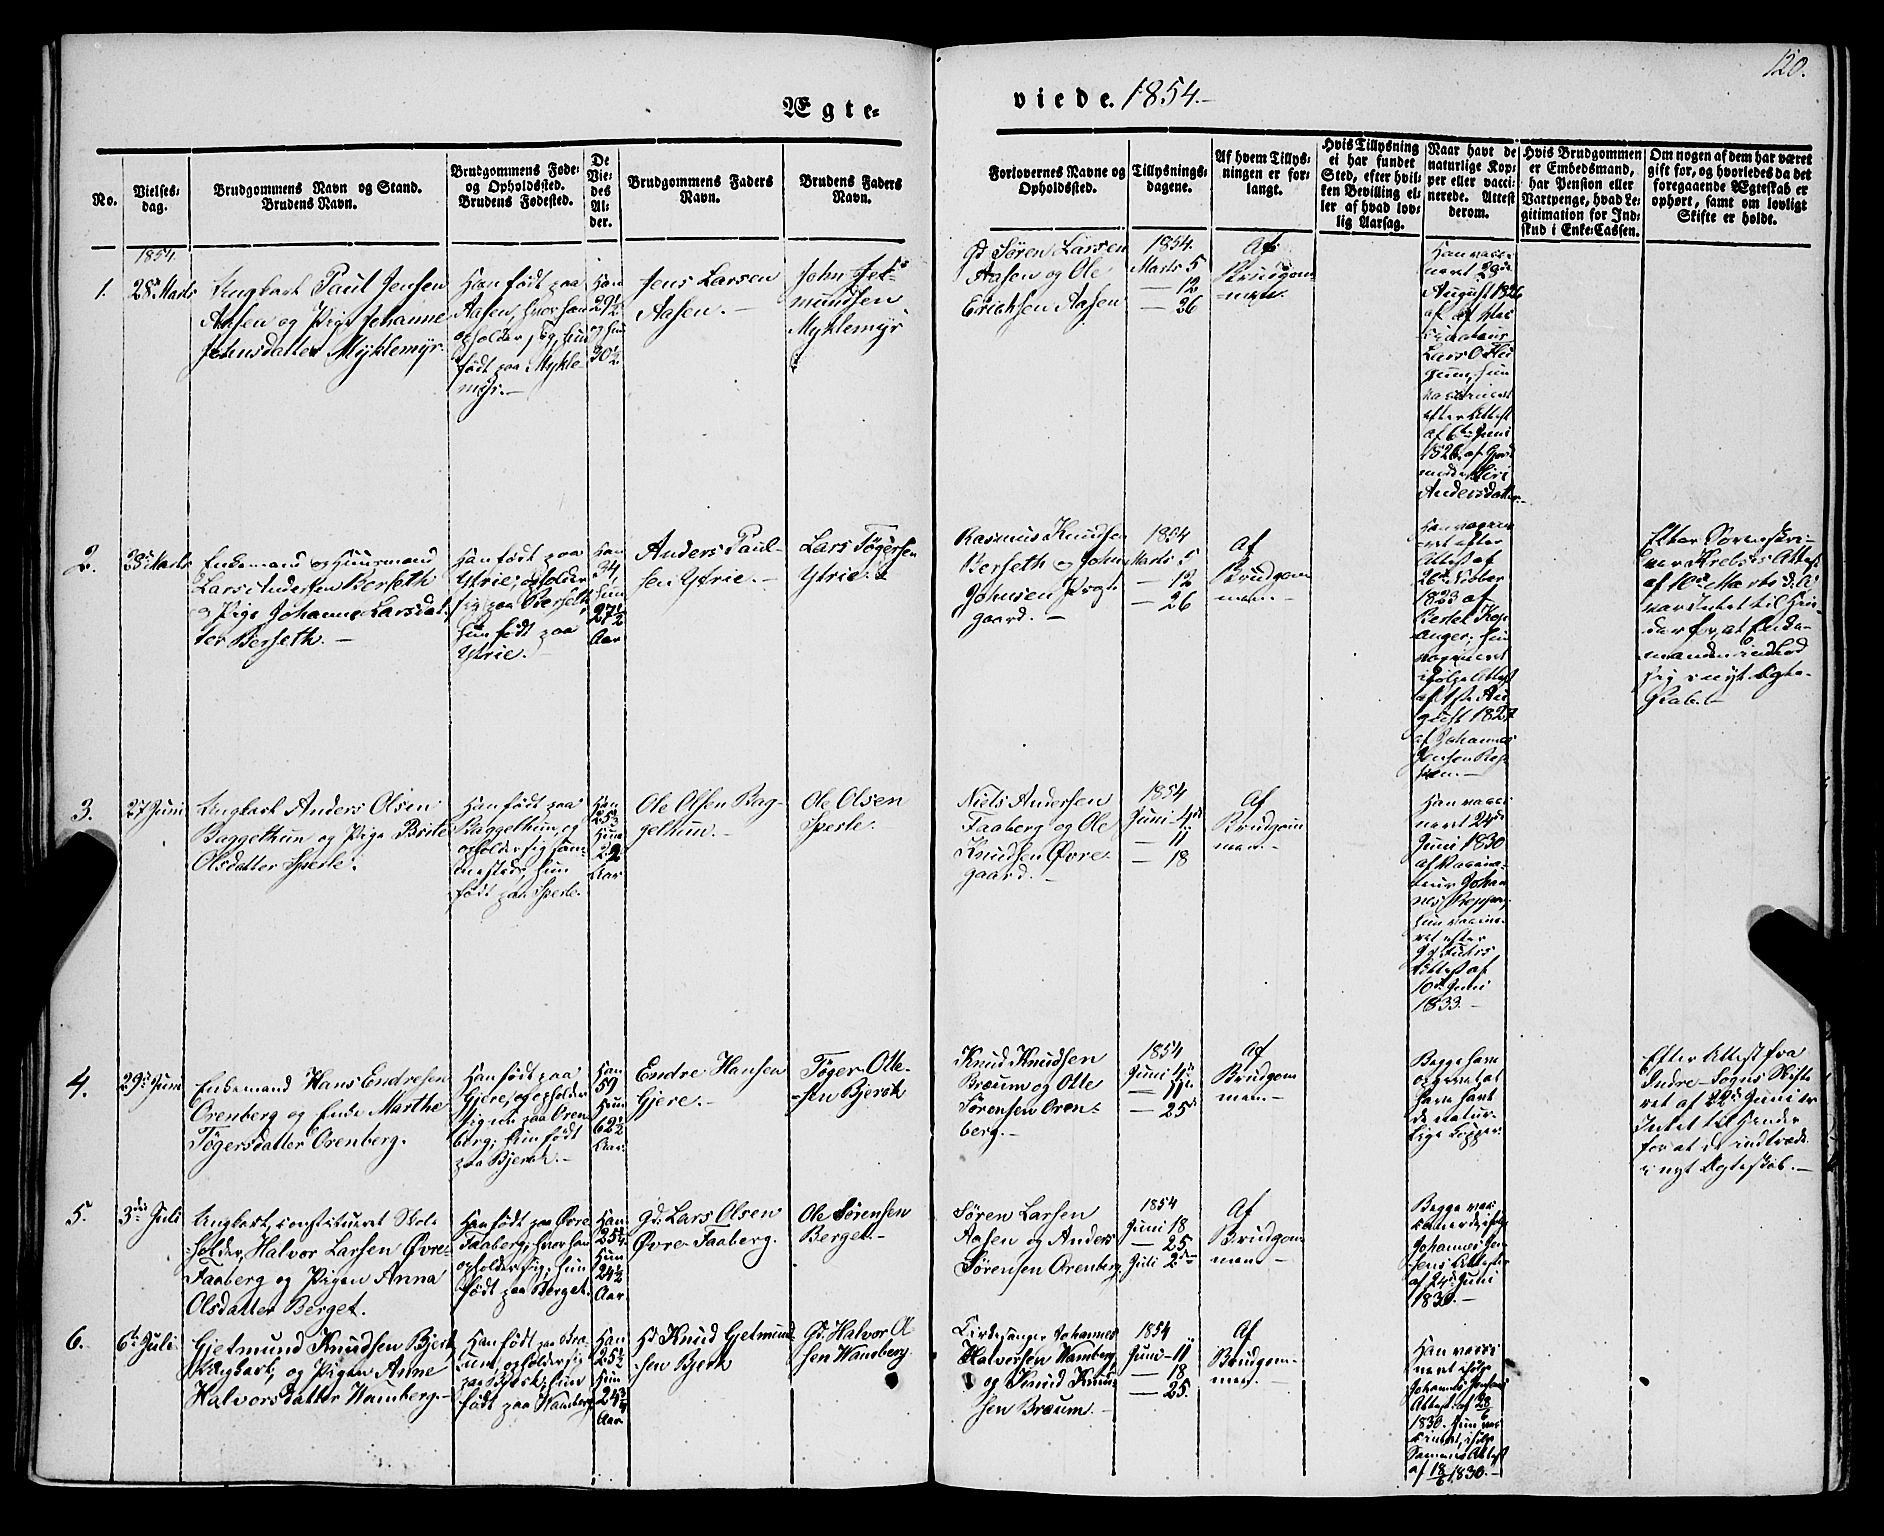 120.
Ægte-
viede. 1854.-
No.
Vielses-
dag.
Brudgommens Navn og Stand.
Brudens Navn.
Brudgommens Føde-
og Opholdssted.
Brudens Fødested.
De
Vie-
des
Al-
der.
Brudgommens Faders
Navn.
Brudens Faders
Navn.
Forlovernes Navne og
Opholdssted.
Tillysnings-
dagene.
Af hvem Tillys-
ningen er for-
langt.
Hvis Tillysning
ei har fundet
Sted, efter hvil-
ken Bevilling el-
ler af hvad lov-
lig Aarsag.
Naar havt de
naturlige Kop-
per eller vacci-
nerede. Attest
derom.
Hvis Brudgommen
er Embedsmand,
har Pension eller
Vartpenge, hvad Le-
gitimation for Ind-
skud i Enke-Cassen.
Om nogen af dem har været
gift før, og hvorledes da det
foregaaende Ægteskab er
ophørt, samt om lovligt
Skifte er holdt.
1854
1.
28de Marts
Ungkarl Paul Jensen
Aasen og Pige Johanne
Johnsdatter Myklemyr.
Han født paa
Aasen, hvor han
opholder sig, hun
født paa Mykle-
myr.-
Han
29½
og hun
30½
Jens Larsen
Aasen.-
John
mundsen
Myklemyr
Gd Søren Larsen
Aasen og Ole
Erichsen Aasen
1854.
Marts 5
- 12
- 26
Af
Brudgom-
men.
Han vacci-
neret 29de
August 1826
af
Lars O.
hun
vaccineret
efter Attest
af 6te Juni
1826 af
Siri
Andersdatter.
2.
28de Marts
Enkemand og Huusmand
Lars Andersen Berseth
og Pige Johanne Larsdat-
ter Berseth.-
Han født paa
Ytrie, opholder
sig paa Berseth,
hun født paa
Ytrie.-
Han
34
hun
27½
Aar
Anders Paul-
sen Ytrie.-
Lars Tøgersen
Ytrie.-
Rasmus Knudsen
Berseth og John
Johnsen
gaard.-
1854
Marts 5
- 12
- 26
Af
Brudgom
men.-
Han vaccine-
ret efter
Attest af
26de October
1823 af
Bertel Kop-
anger; hun
vaccineret
ifølge Attest
af 1ste Au-
gust 1827
af Johannes
Jensen
Efter Sorenskri-
ver Krebs's Attest
af 10de Marts d. A.
var Intet til Hin-
der for, at Enke-
manden indlod
sig i nyt Ægte-
skab.-
3.
27 Juni
Ungkarl Anders Olsen
Baggethun og Pige Brite
Olsdatter Sperle.
Han født paa
Baggethun, og
opholder sig sam-
mesteds; hun
født paa Sperle.
Han
25¾
Hun
22
Aar
Ole Olsen Bag-
gethun.-
Ole Olsen
Sperle.
Niels Andersen
Faaberg og Ole
Knudsen Øvre-
gaard.-
1854
Juni 4de
- 11
- 18
Af
Brudgom
men.-
Han vacci-
neret 24de
Juni 1830
af Vaccina-
teur Johan-
nes
hun vaccine-
ret efter
Attest af
10de Juni
1833.-
4.
29de Juni
Enkemand Hans Endresen
Orenberg og Enke Marthe
Tøgersdatter Orenberg.
Han født paa
Gjere, og opholder
sig nu paa Oren-
berg; hun født
paa Bjerk.-
Han
59
Hun
62½
Aar.
Endre Hansen
Gjere.-
Tøger Otte-
sen Bjerk
Knud Knudsen
Bræum og Otte
Sørensen Oren-
berg.-
1854
Juni 4de
- 11te
- 25de
Af
Brudgom
men.-
Begge have
opgivet at
have havt
de natur-
lige Kopper.
Efter Attest fra
Indre-Sogns Skifte-
ret af 22de Juni er
Intet til Hinder
for at de indtræde
i nyt Ægteskab.-
5.
3die Juli
Ungkarl, constitueret Skole-
holder, Halvor Larsen Øvre-
Faaberg og Pigen Anna
Olsdatter Berget.
Han født paa Øvre-
Faaberg, hvor han
opholder sig; hun
født paa Berget.
Han
25¼
Hun
24½
Aar
Gd. Lars Olsen
Øvre-Faaberg.
Ole Sørensen
Berget.-
Søren Larsen
Aasen og Anders
Sørensen Orenberg
1854
Juni 18
- 25
Juli 2den
Af
Brudgom
men-
Begge vac-
cinerede, ifølge
Johannes Jen-
sens Attester
af 24de Juni
1830.-
6.
6te Juli
Gjetmund Knudsen Bjerk
Ungkarl, og Pigen Anne
Halvorsdatter Wamberg.-
Han født paa Bræ-
um, opholder sig
paa Bjerk; hun
født paa Wamberg.
Han
25½
Hun
24¾
Aar
Hd. Knud Gjetmund-
sen Bjerk
Gd. Halvor A-
sen Wamberg.
Kirkesanger Johannes
Halvorsen Wamberg
og Knud Knud-
sen Bræum.-
1854
Juni 11
- 18
- 25.
Af
Brudgom-
men.-
Han vacci-
neret ifølge
Johannes Jensens
Attest af 28/6
1830. Hun vac-
cineret, ifølge
Sammes Attest
af 18/6 1830.-